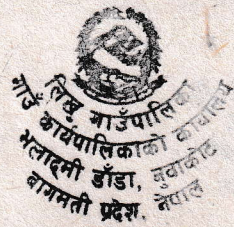 लिखु गाउँपालिका
गाउँ कार्यपालिकाको कार्यालय
भलादमी डाँडा, नुवाकोट
बागमती प्रदेश, नेपाल